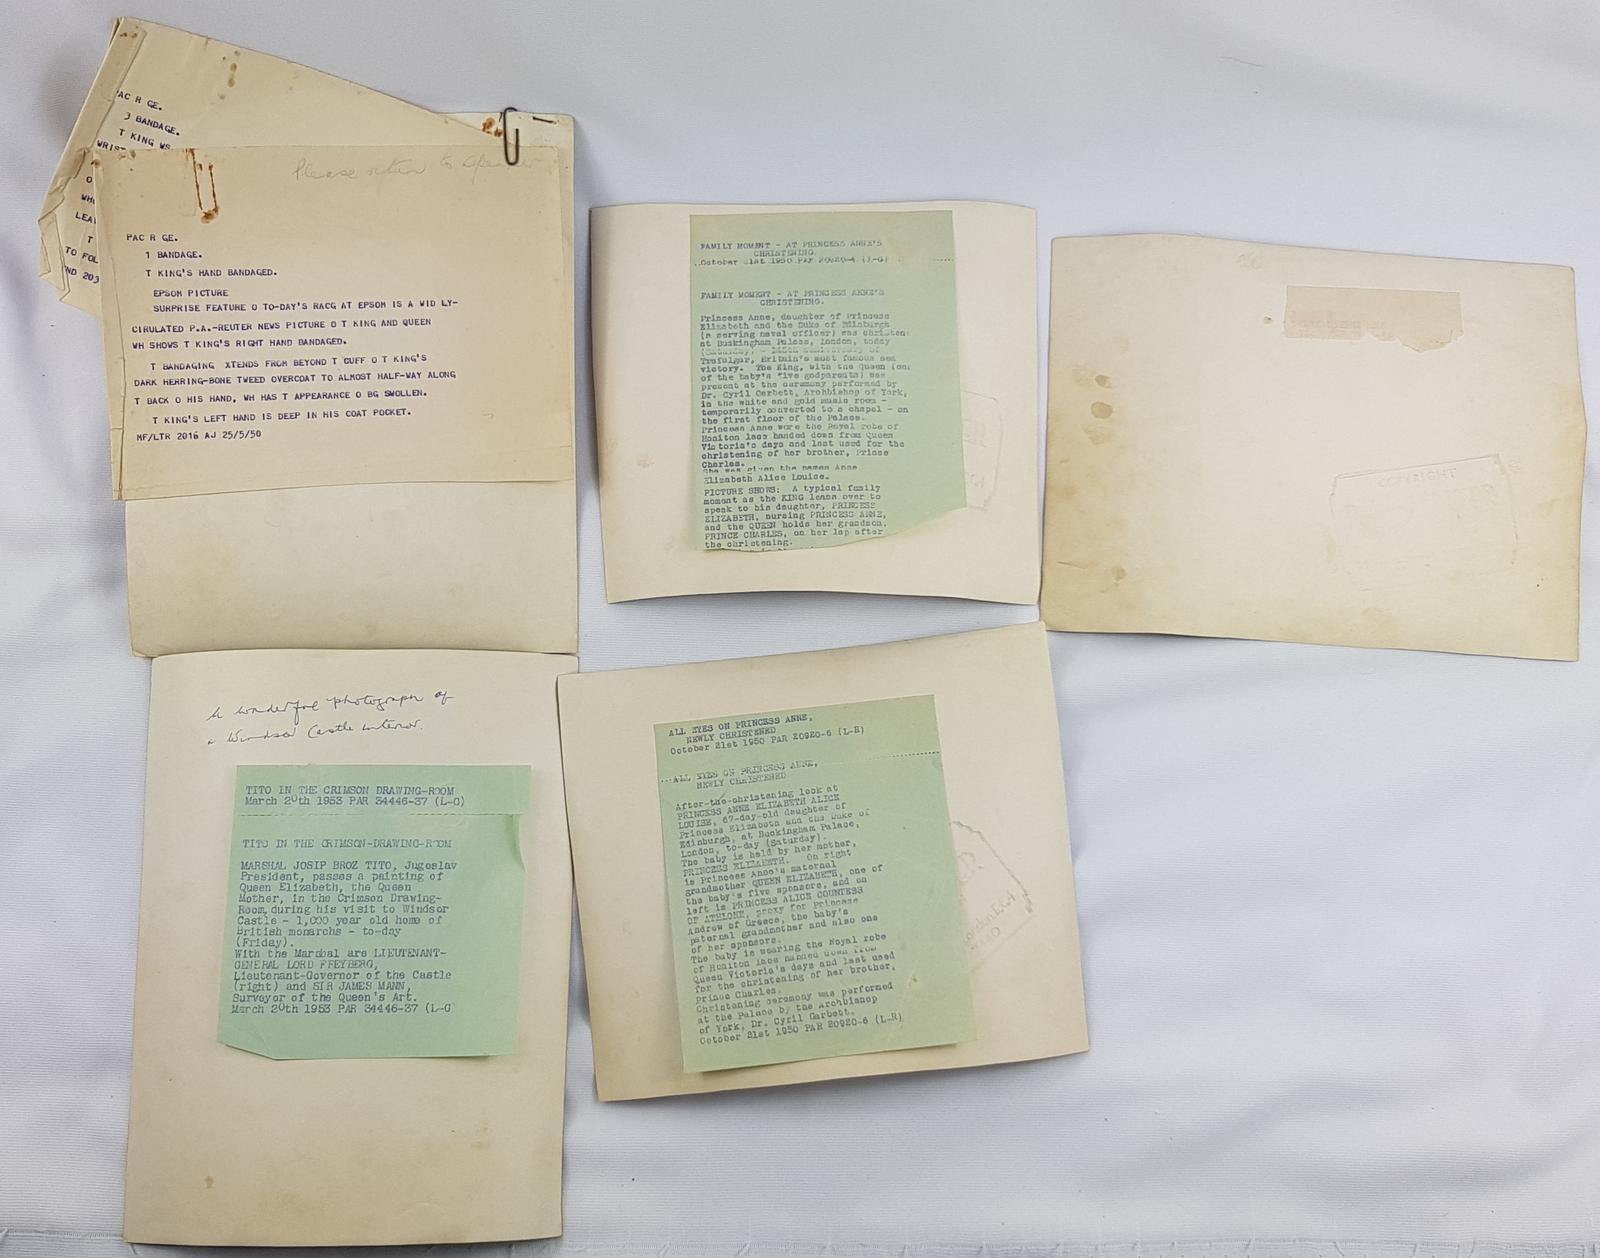 PAC R GE.
J BANDAGE.
T KING WS
WRIST
O
WH
LEA
T
TO FOL
ND 203
Please return to
PAC R GE.
1 BANDAGE.
T KING'S HAND BANDAGED.
EPSOM PICTURE
SURPRISE FEATURE O TO-DAY'S RACG AT EPSOM IS A WID LY-
CIRULATED P.A.-REUTER NEWS PICTURE O T KING AND QUEEN
WH SHOWS T KING'S RIGHT HAND BANDAGED.
T BANDAGING XTENDS FROM BEYOND T CUFF O T KING'S
DARK HERRING-BONE TWEED OVERCOAT TO ALMOST HALF-WAY ALONG
T BACK O HIS HAND, WH HAS T APPEARANCE O BG SWOLLEN.
T KING'S LEFT HAND IS DEEP IN HIS COAT POCKET.
MF/LTR 2016 AJ 25/5/50
FAMILY MOMENT - AT PRINCESS ANNE'S
CHRISTENING.
October 21st 1950 PAR 20920-4 (L-G)
FAMILY MOMENT - AT PRINCESS ANNE'S
CHRISTENING.
Princess Anne, daughter of Princess
Elizabeth and the Duke of Edinburgh
(a serving naval officer) was christen
at Buckingham Palace, London, today
(Saturday) - anniversary of
Trafalgar, Britain's most famous sea
victory. The King, with the Queen (one
of the baby's five godparents) was
present at the ceremony performed by
Dr. Cyril Garbett, Archbishop of York,
in the white and gold music room -
temporarily converted to a chapel - on
the first floor of the Palace.
Princess Anne wore the Royal robe of
Honiton lace handed down from Queen
Victoria's days and last used for the
christening of her brother, Prince
Charles.
She was given the names Anne
Elizabeth Alice Louise.
PICTURE SHOWS: A typical family
moment as the KING leans over to
speak to his daughter, PRINCESS
ELIZABETH, nursing PRINCESS ANNE,
and the QUEEN holds her grandson,
PRINCE CHARLES, on her lap after
the christening.
COPYRIGHT
A wonderful photograph of
a Windsor Castle interior.
TITO IN THE CRIMSON DRAWING-ROOM
March 20th 1953 PAR 34446-37 (L-G)
TITO IN THE CRIMSON-DRAWING-ROOM
MARSHAL JOSIP BROZ TITO, Jugoslav
President, passes a painting of
Queen Elizabeth, the Queen
Mother, in the Crimson Drawing-
Room, during his visit to Windsor
Castle - 1,000 year old home of
British monarchs - to-day
(Friday).
With the Marshal are LIEUTENANT-
GENERAL LORD FREYBERG,
Lieutenant-Governor of the Castle
(right) and SIR JAMES MANN,
Surveyor of the Queen's Art.
March 20th 1953 PAR 34446-37 (L-G
ALL EYES ON PRINCESS ANNE,
NEWLY CHRISTENED
October 21st 1950 PAR 20920-6 (L-R)
ALL EYES ON PRINCESS ANNE,
NEWLY CHRISTENED
After-the-christening look at
PRINCESS ANNE ELIZABETH ALICE
LOUISE, 67-day-old daughter of
Princess Elizabeth and the Duke of
Edinburgh, at Buckingham Palace,
London, to-day (Saturday).
The baby is held by her mother,
PRINCESS ELIZABETH. On right
is Princess Anne's maternal
grandmother QUEEN ELIZABETH, one of
the baby's five sponsors, and on
left is PRINCESS ALICE COUNTESS
OF ATHLONE, proxy for Princess
Andrew of Greece, the baby's
paternal grandmother and also one
of her sponsors.
The baby is wearing the Royal robe
of Honiton lace handed down from
Queen Victoria's days and last used
for the christening of her brother,
Prince Charles.
Christening ceremony was performed
at the Palace by the Archbishop
of York, Dr. Cyril Garbett.
October 21st 1950 PAR 20920-6 (L-R)
London E.C.4